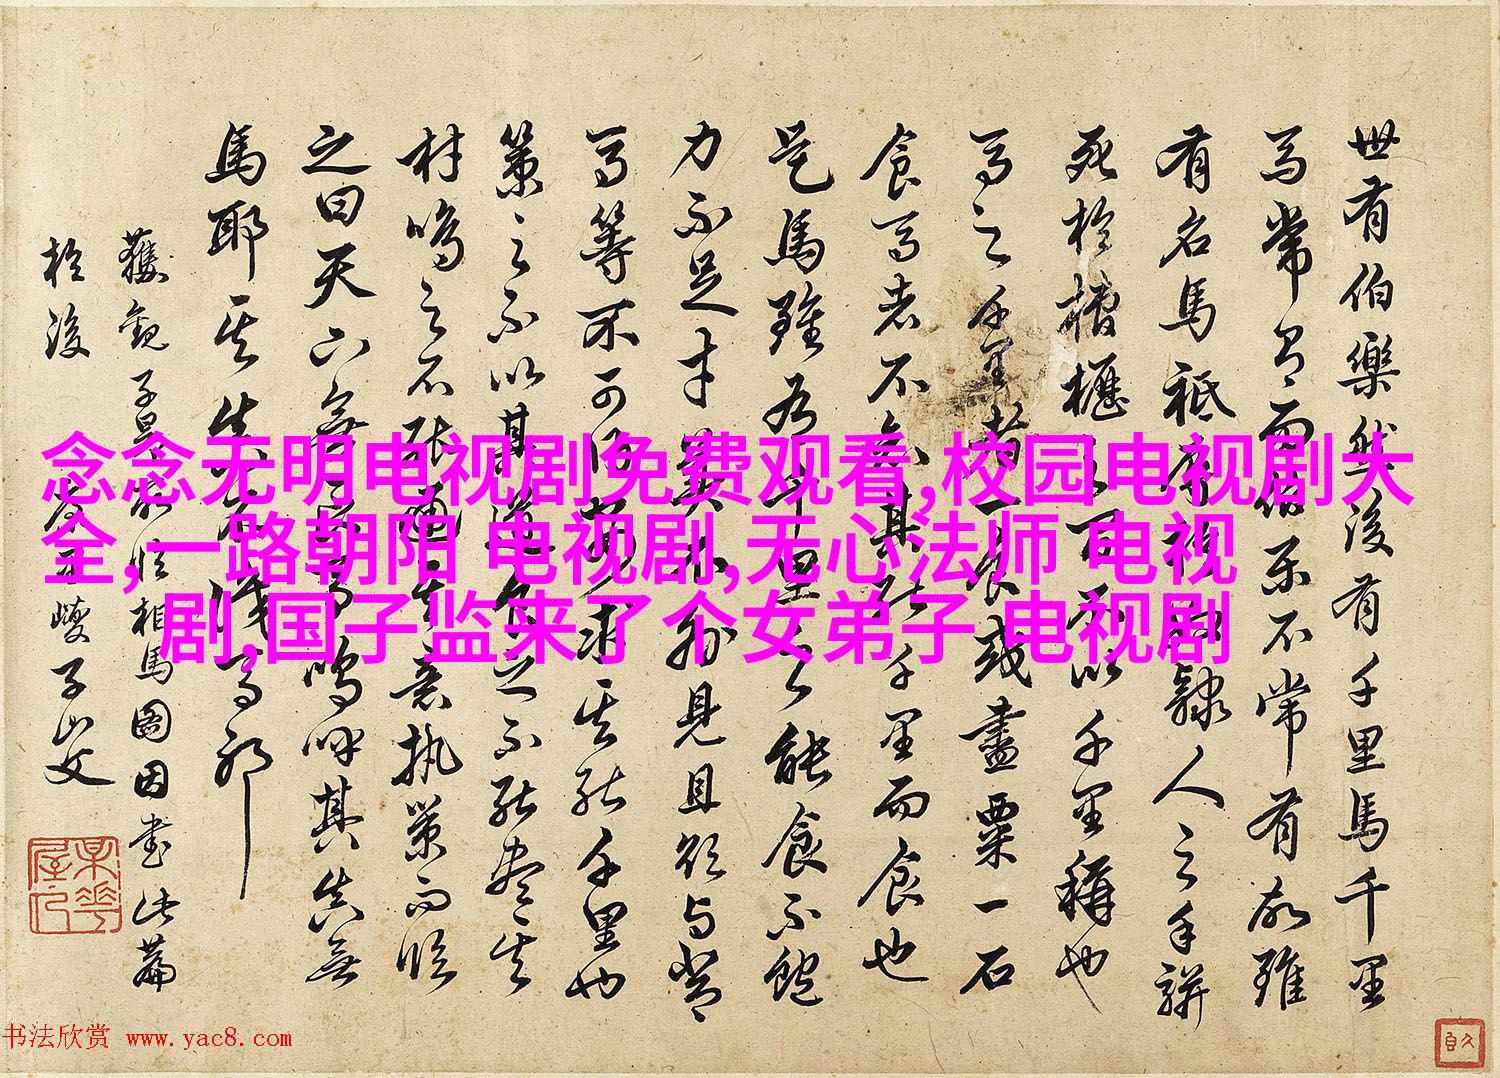 世有伯樂然後有千里馬千里
馬常有而伯樂不常有故雖
有名馬祗辱於奴隸人之手駢
死於槽櫪以千里稱也
馬之千里者一食或盡粟一石
食馬者不知其能千里而食也
是馬雖有千里之能食不飽
力不足才美不外見且欲與常
馬等不可得安求其能千里也
策之不以其道食之不能盡其
材鳴之不能通其意執策而臨
之曰天下無馬嗚呼其真無
馬耶其真不識馬耶
獲觀子昂所臨相馬圖因書此篇
於後
子山父
念念无明电视剧免费观看,校园电视剧大
全,一路朝阳 电视剧,无心法师 电视
剧,国子监来了个女弟子 电视剧
书法欣赏 www.yac8.com